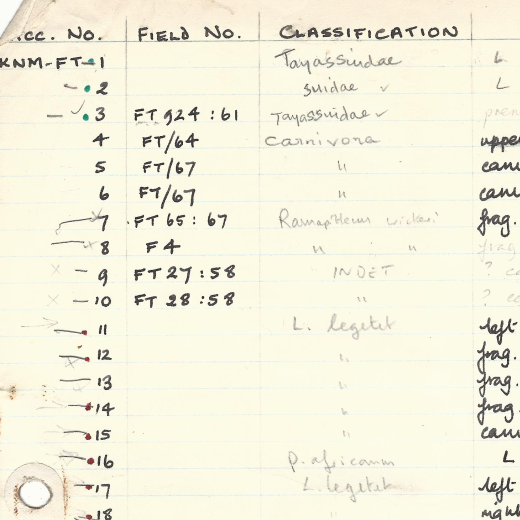 CC. No. FIELD No. CLASSIFICATION
KNM-FT-1 Tayassuidae L
2 Suidae ✓ L
3 FT 924 : 61 Tayassuidae ✓
4 FT/64 Carnivora uppe
5 FT/67 " cani
6 FT/67 " cani
7 FT 65 : 67 wickeri frag.
8 F4 " " frag
9 FT 27 : 58 INDET ?
10 FT 28 : 58 " ?
11 L. legetet left
12 " frag.
13 " frag.
14 " frag.
15 " cani
16 P. africanus L
17 L. legetet left
18